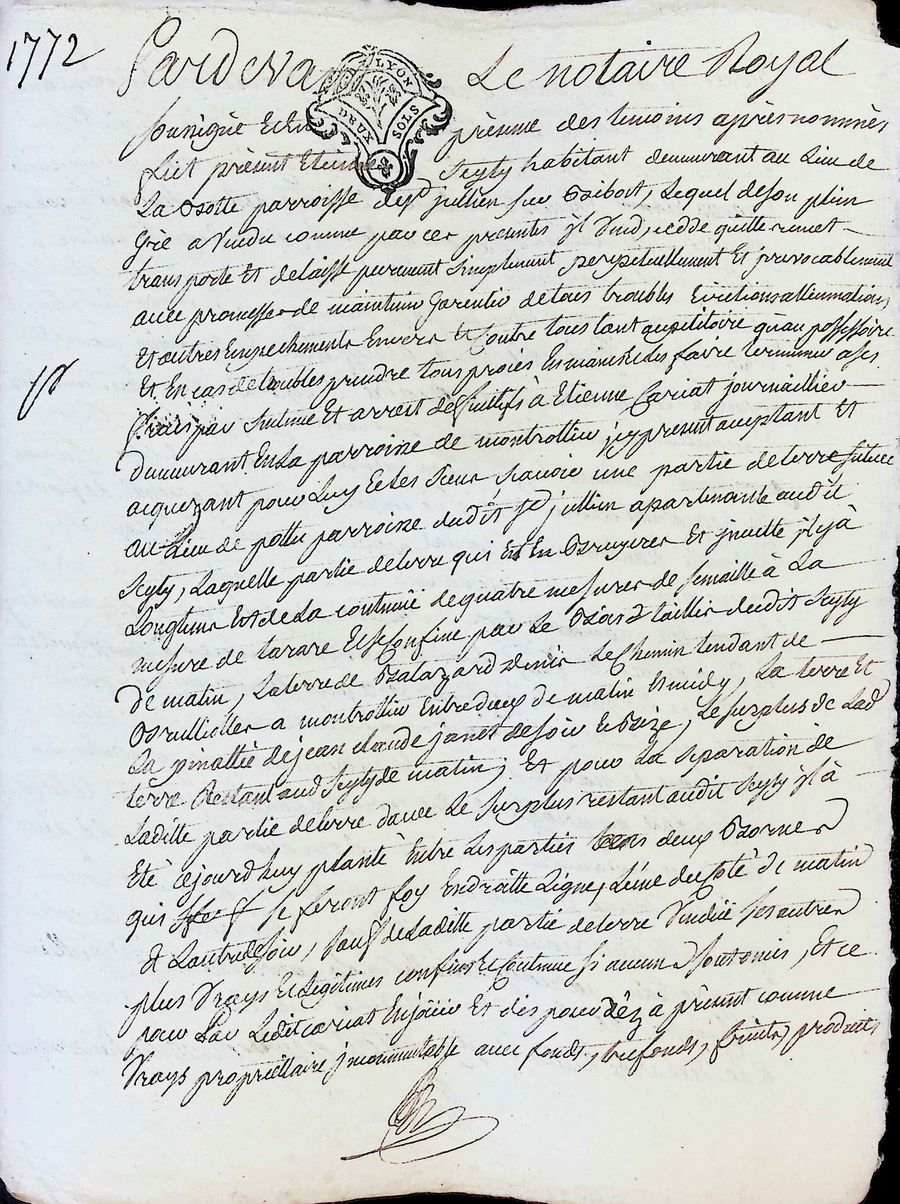 1772
Pardeva Le notaire Royal
LYON
DEUX SOLS
soussigné Et En présence des temoins après nommés
fut présent Etienne Seyty habitant demeurant au Lieu de
La parroisse de St jullien sur Bibost, Lequel de son plein
Gré a vendu comme par ces presentes jl vend, cedde quitte remet
transporte Et delaisse purement simplement perpetuellement Et jrrevocablement
avec promesse de maintenir Garentir de tous troubles Evictions allienations
Et autres Empechements Envers Et Contre tous tant au petitoire qu'au possessoire
Et En cas de troubles prendre tous procès En main Et les faire terminer a ses
frais par Sentence Et arrest deffinitifs à Etienne Cariat journaillier
demeurant En la parroisse de montrottier jcy present acceptant Et
acquerant pour Luy Et les siens scavoir une partie de terre située
au Lieu de parroisse dudit St jullien apartenante audit
Seyty, Laquelle partie de terre qui Est En Bruyeres Et jnculte jl y à
Longtems Est de La contenüe de quatre mesures de semaille à La
mesure de tarare Et se Confine par Le Bois taillis dudit Seyty
de matin, La terre de Le Chemin tendant de
a montrottier Entre deux de matin Et midy, La terre Et
La pinattée de jean claude janet de soir Et Bize, Le surplus de Lad
terre Restant aud Seyty de matin; Et pour La separation de
Laditte partie de terre davec Le surplus restant audit Seyty jl à
Eté cejourdhuy planté Entre Les parties deux Bornes
qui se feront foy En droitte Ligne, L'une du Coté de matin
Et L'autre de soir, sauf de Laditte partie de terre Vendüe ses autres
plus Vrays Et Legitimes confins Et Contenue si aucuns sont omis, Et ce
pour Par Ledit cariat En joüir Et dès à présent comme
Vrays propriettaire jncommutable avec fonds, trefonds, fruits, produits